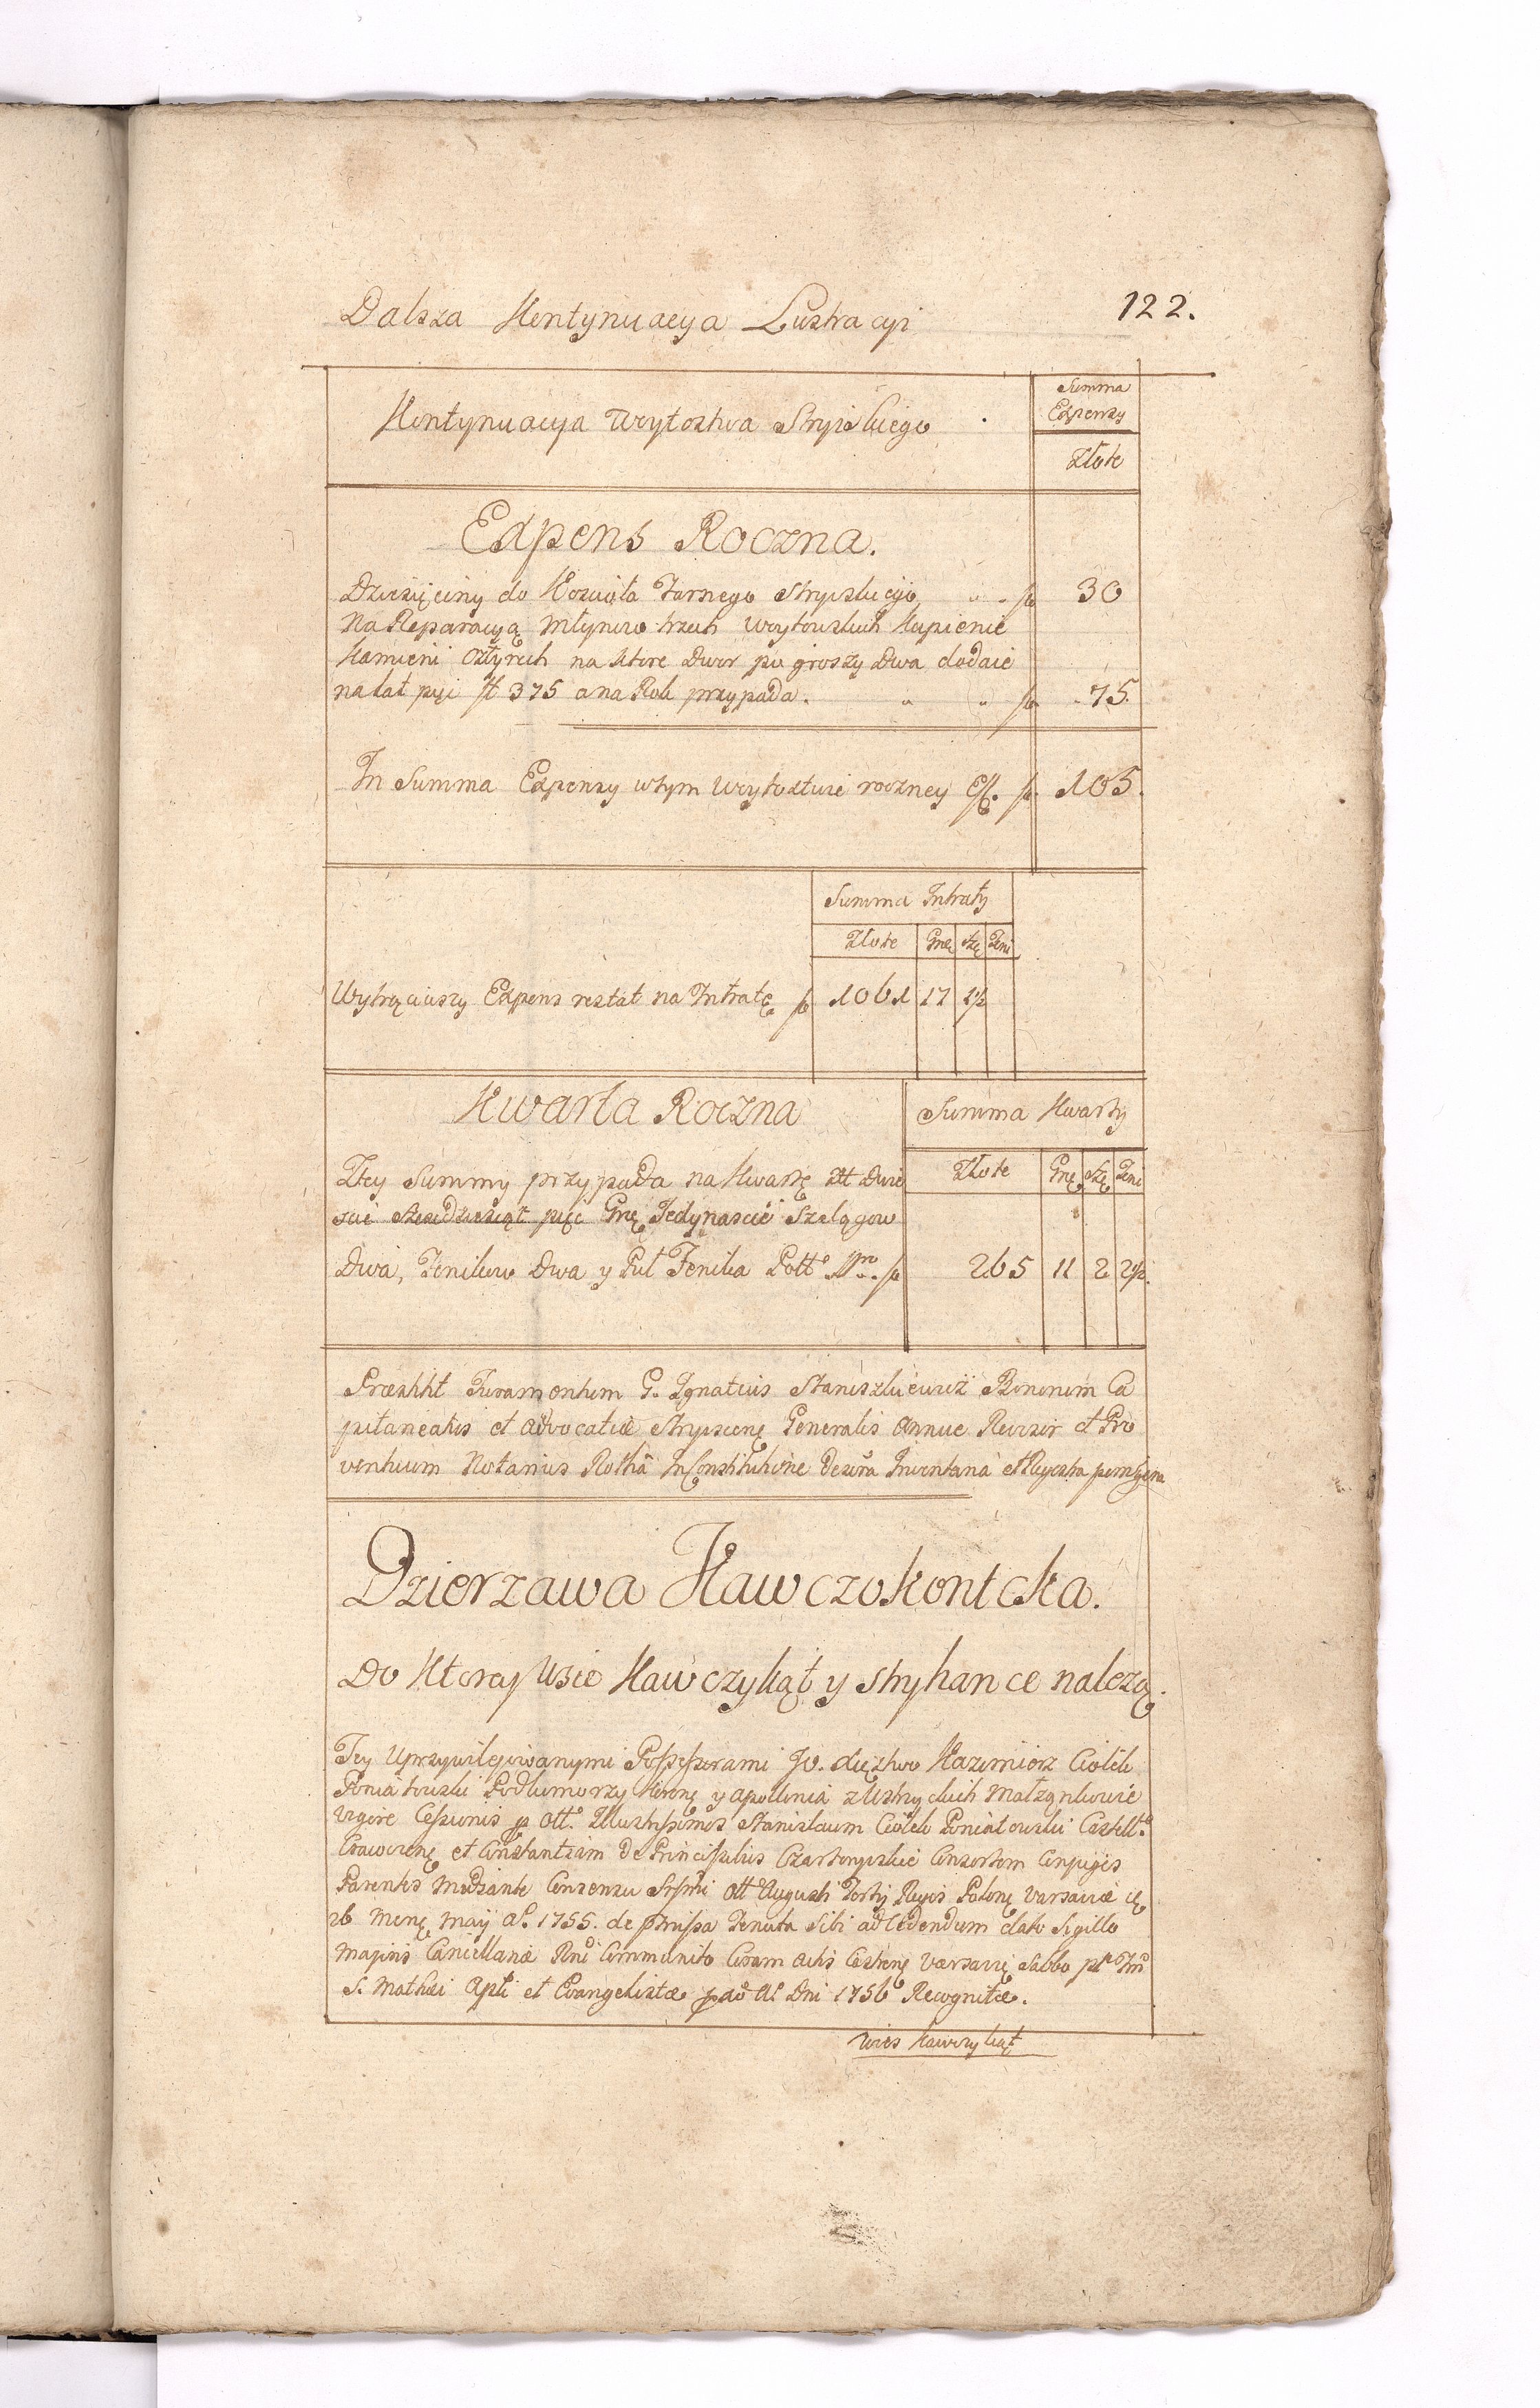 122.
Dalsza Kontynuacya Lustracyi
Kontynuacya Woytostwa Stryiskiego
Summa
Expensy
Złote
Expens Roczna.
Dziesięciny do Kościoła Farnego Stryiskiego 30
Na Reparacyą Młynow trzech Woytowskich Kupienie
Kamieni cztyrech na ktore Dwor po groszy Dwa dodaie
na lat pięć zł 375 a na Rok przypada. 75.
In Summa Expensy w tym Woytostwie roczney Eff. 105.
Summa Intraty
Złote Gr Sze Feni
Wytrąciwszy Expens restat na Intratę 1061 17 1½
Kwarta Roczna
Summa Kwarty
Z tey Summy przypada na Kwartę zł Dwie
Złote Gr Sze Feni
scie Szesdziesiąt pięć Gr Jedynascie Szelągow
Dwa, Fenikow Dwa y Puł Fenika 265 11 2 2½.
Præstitit Juramentum G. Ignatius Staniszkiewicz Bonorum Ca
pitaneatus et advocatiæ Stryiscen Generalis Annue Revisor et Pro
ventuum Notarius Rothâ In Constitutione
Dzierzawa Kawczokontcka.
Do Ktorey Wsie Kawczykąt y Stryhance nalezą.
Tey Uprzywilejowanymi Possessorami Kazimierz Ciołek
Poniatowski Podkomorzy Koronny y Apollonia z Ustrzyckich Małząnkowie
Vigore Cessionis p Illustrissimos Stanislaum Ciołek Poniatowski Castell.
Cracovien et Constantiam de Principibus Czartoryskie Consortem Conjuges
Parentes Mediante Consensu Srssmi Augusti Tertij Regis Polon Varsaviæ
26 Mens Maij A° 1755. de pmissa Tenuta Sibi ad Cedendum dato Sigillo
Majoris Cancellariæ Rni Communito Coram Actis Castren Varsavien Sabbo
S. Mathæi Apli et Evangelistæ A° Dni 1756 Recognitæ.
Wies Kawczykąt